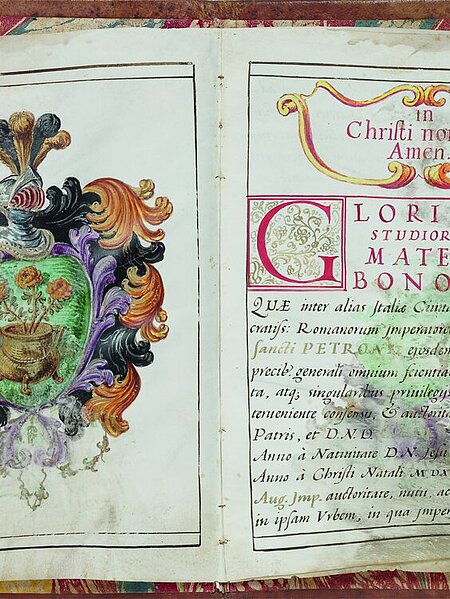 in
Christi no
Amen.
GLORI
STUDIOR
MATE
BONO
QVÆ inter alias Italiæ Ciuita
cratiss: Romanorum Imperator
sancti PETRONII ejosdem
precib. generali omnium scientia
ta, atq; singularibus priuilegij
terueniente consensu, & auctorita
Patris, et D.N.D
Anno à Natiuitate D.N. Jesu
Anno à Christi Natali MDX
Aug. Imp. auctoritate, nutu, ac
in ipsam Vrbem, in qua Impe